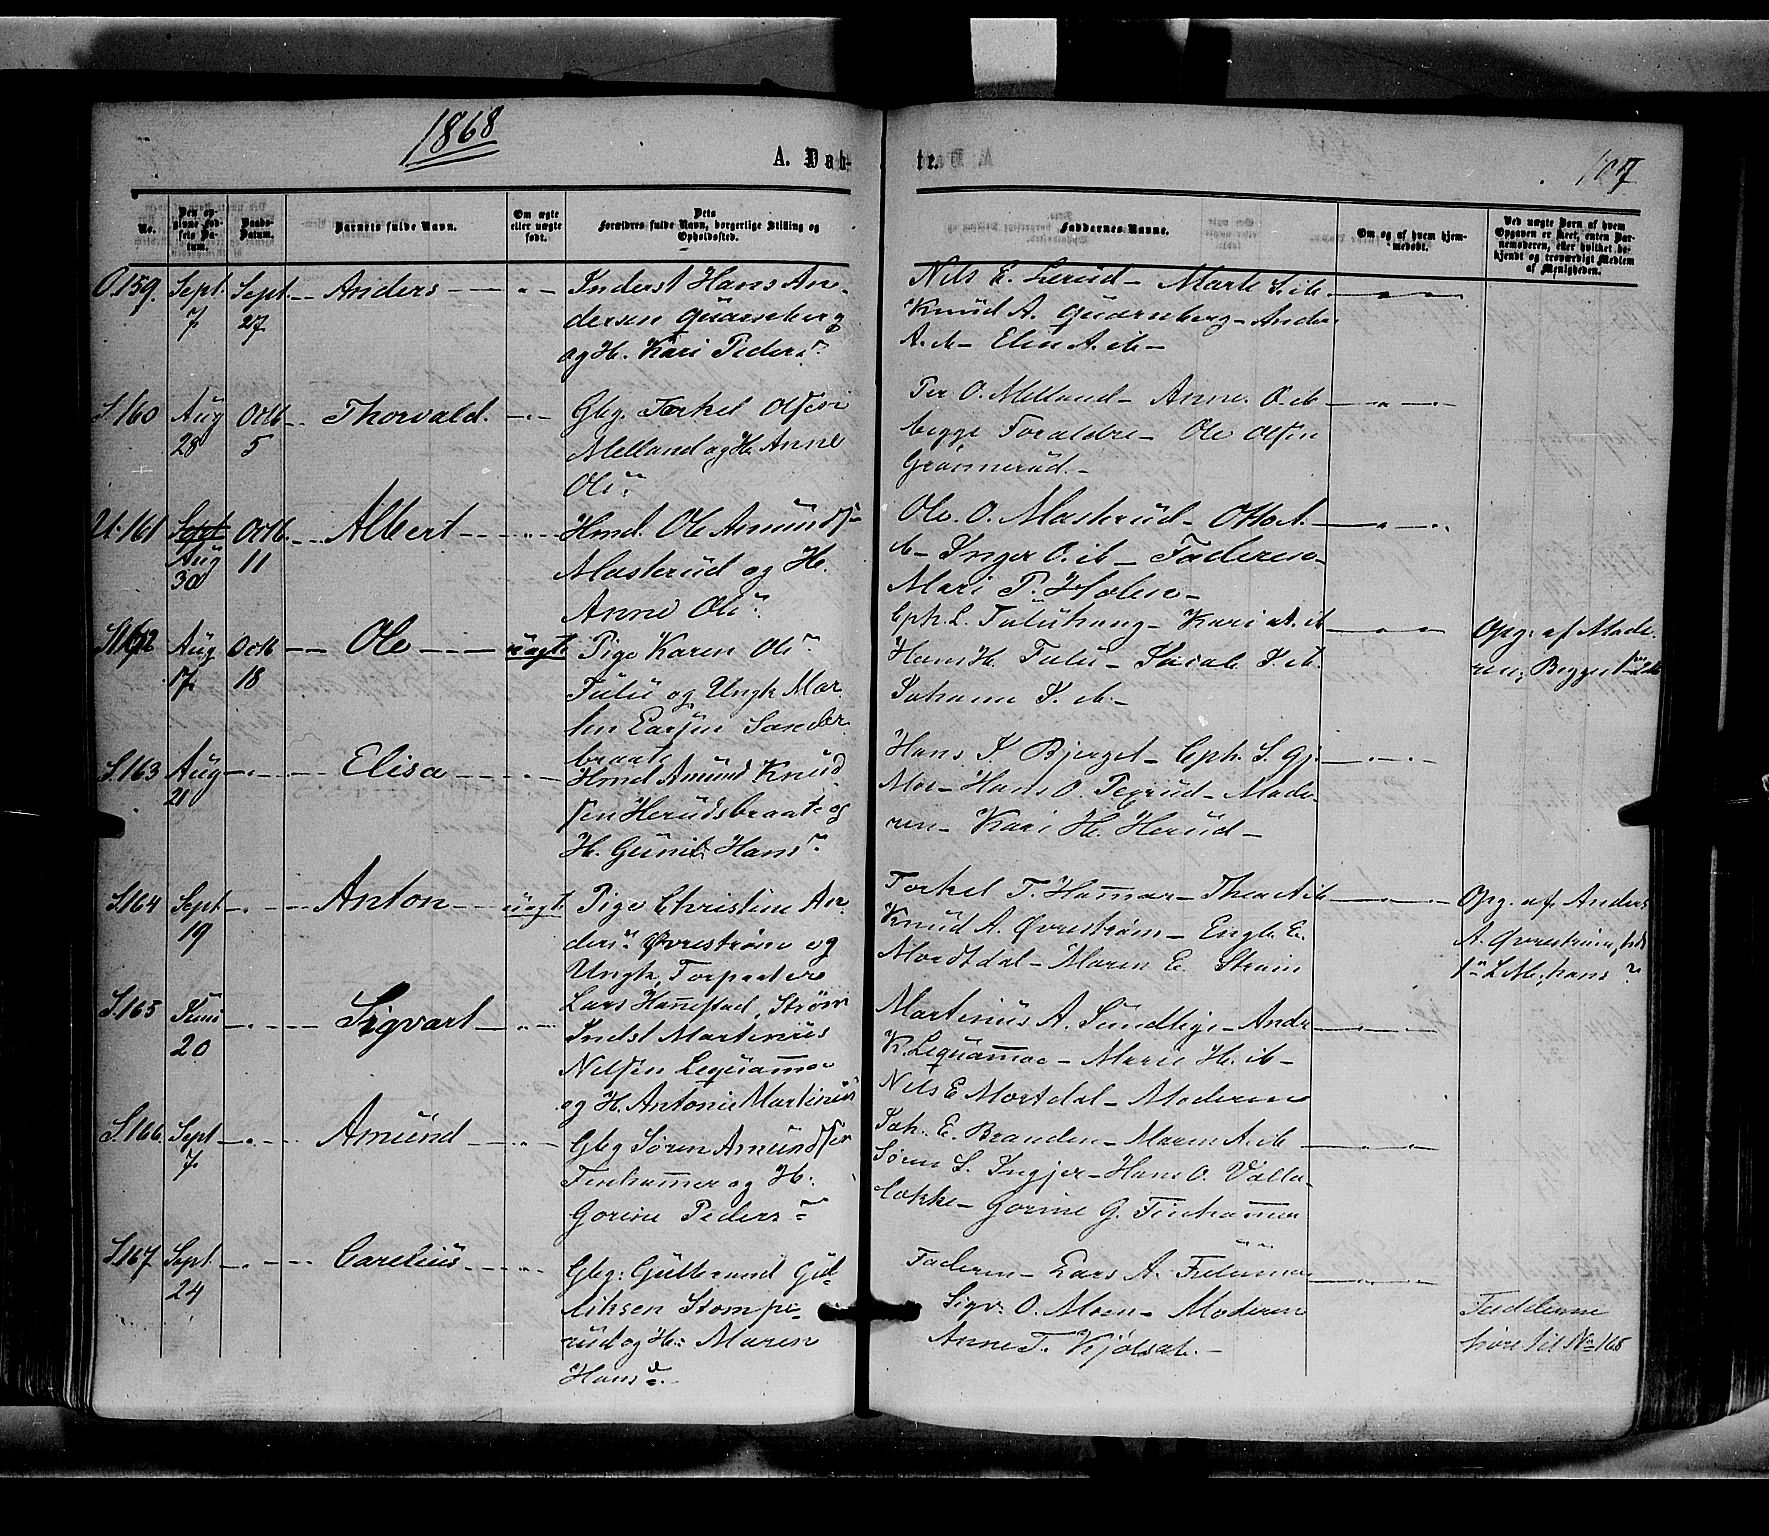 1868
A. Daab-
tr.
107
No.
Den op-
givne Fød-
sels Da-
tum.
Daabs-
Datum.
Barnets fulde Navn.
Om ægte
eller uægte
født.
Dets
Forældres fulde Navn, borgerlige Stilling og
Opholdssted.
Faddernes Navne.
Om og af hvem hjem-
medøbt.
Ved uægte Børn af hvem
Opgaven er skeet, enten Bar-
nemoderen, eller hvilket be-
kjendt og troværdigt Medlem
af Menigheden.
O. 159. Sept 7 Sept. 27 Anders
Inderst Hans An-
dersen
og H. Kari Peders
Nils E. Lerud - Marte
Knud A. - Anders
A. ib - Elen A. ib -
S. 160 Aug 28 Octb 5 Thorvald.
Gbg. Torkel Olsen
Melland og H. Anne
Ols
Per O. Melland - Anne O. ib
begge Forældre - Ole Olsen
161 Sept Aug 30 Octb. 11 Albert
Hmd. Ole Amunds-
Masterud og H.
Anne Ols
Ole O. Masterud - Otto A.
ib - Inger O. ib - Faderen -
Mari P. Holen -
162 Aug 17 Octb 18 Ole uægte
Pige Karen Ols
Tulu og Ungk. Mar-
tin Larsen Sander-
braate
Eph. L. Tuluhaug - Kari A. ib
Hans H. Tulu -
Johanne
Opg. af Mode-
ren; Begges
S. 163 Aug 21 Elisa
Hmd Amund Knud-
sen Herudsbraate og
H. Gunild Hans
Hans Bjerget - Eph. S. Gj.
Moe - Hans O. - Mode-
ren - Kari H. Herud -
S. 164 Sept 19 Anton uægte
Pige Christine An-
ders Øvrestrøm og
Ungk. Forpagter
Lars Hammestad, Strøm
Torkel T. Hammer - Thea A. ib
Knud A. Øvrestrøm - Engb. E.
Mordtdal - Maren E. Strøm
Opg. af Anders
A. Øvrestrøm,
S. 165 Juni 20 Sigvart
Indst Martinius
Nelsen Lequamoe
og H. Antonie Martinius
Martinius A. Sundlige - Andr.
K. Lequamoe - Marie H. ib -
Nils E Mortdal - Moderen
S. 166 Sept 7 Amund
Gbg Søren Amundsen
Finhammer og H.
Gorine Peders
Joh. E. Branden - Maren A. ib
Søren L. Ingjer - Hans O. Valle-
løkke - Gorine G. Finhammer
S. 167 Sept 24 Carelius
Gbg. Gulbrand Gul-
liksen Stompe-
rud og H. Maren
Hans
Faderen - Lars A.
Sigv. O. Moen - Moderen
Anne T. Kjølsæt. -
Fadderne
høre til No 168